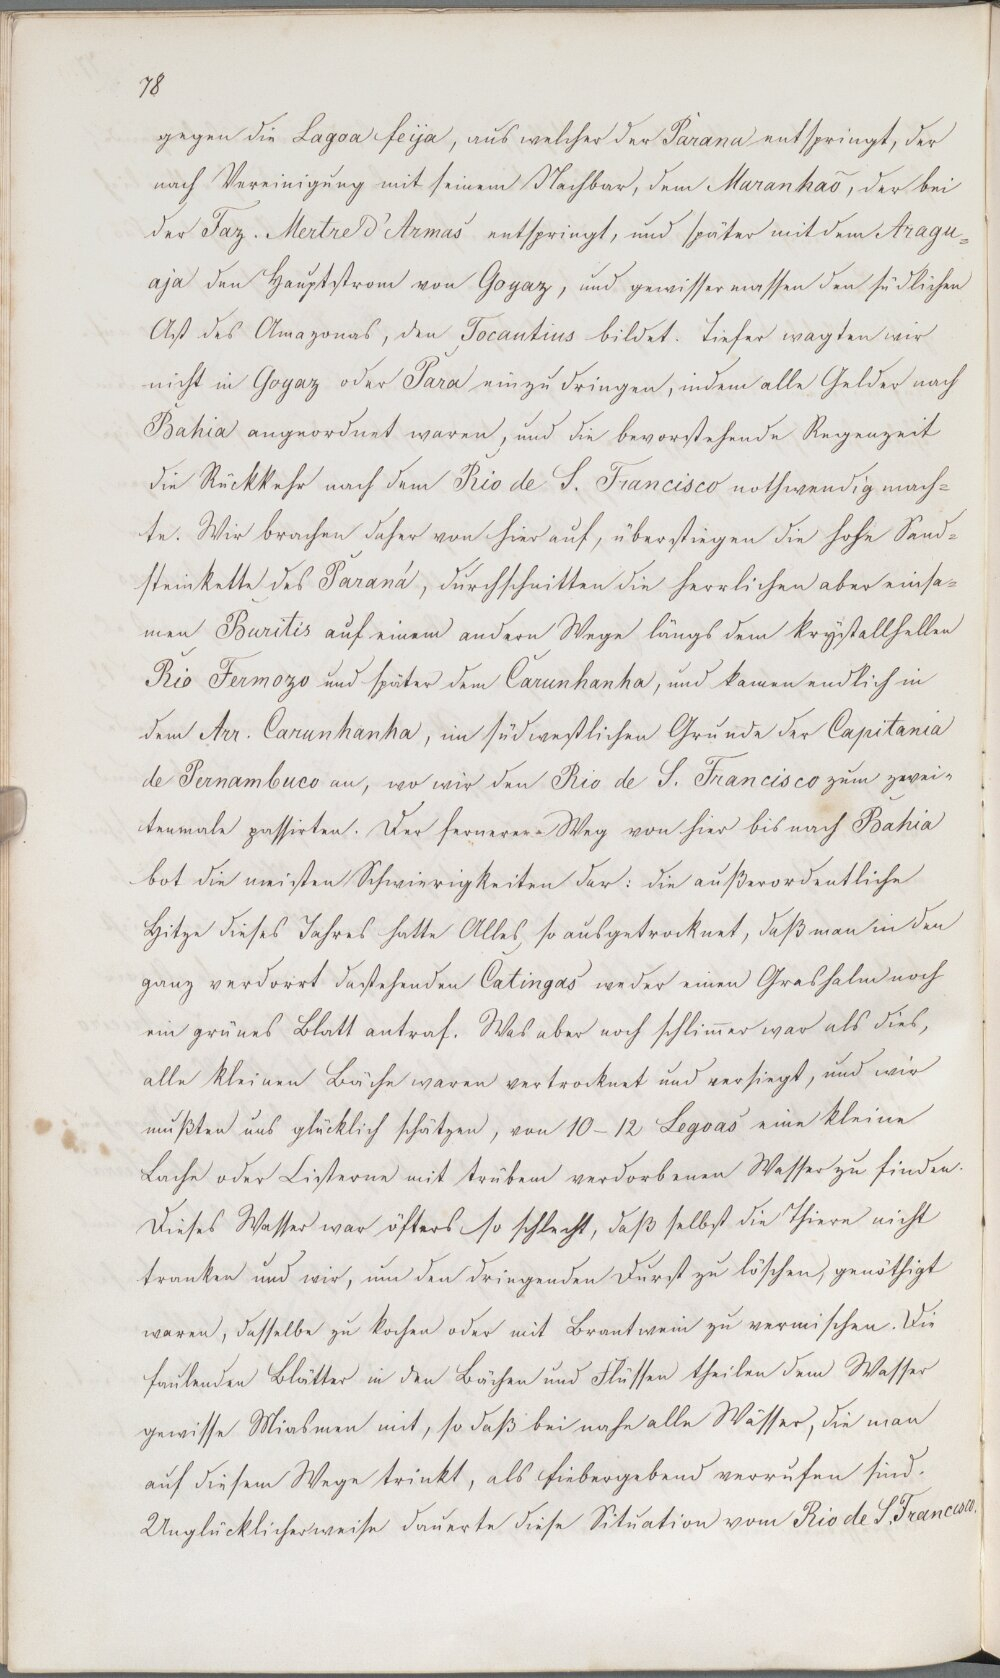 78
gegen die Lagoa feija, aus welcher der Parana entspringt, der
nach Vereinigung mit seinem Nachbar, dem Maranhaõ, der bei
der Faz. Mertre d'Armas entspringt, und später mit dem Aragu-
aja den Hauptstrom von Goyaz, und gewissermassen den südlichen
Ast des Amazonas, den Tocantius bildet. Tiefer wagten wir
nicht in Goyaz oder Para einzudringen, indem alle Gelder nach
Bahia angeordnet waren, und die bevorstehende Regenzeit
die Rückkehr nach dem Rio de S. Francisco nothwendig mach-
te. Wir brachen daher von hier auf, überstiegen die hohe Sand-
steinkette des Paraná, durchschnitten die herrlichen aber einsa-
men Buritis auf einem andern Wege längs dem krystallhellen
Rio Fermozo und später dem Carunhanha, und kamen endlich in
dem Arr. Carunhanha, im südwestlichen Grunde der Capitania
de Pernambuco an, wo wir den Rio de S. Francisco zum zwei-
tenmale passirten. Der fernere Weg von hier bis nach Bahia
bot die meisten Schwierigkeiten dar: die außerordentliche
Hitze dieses Jahres hatte Alles so ausgetrocknet, daß man in den
ganz verdorrt dastehenden Catingas weder einen Grashalm noch
ein grünes Blatt antraf. Was aber noch schlim̅er war als dies,
alle kleinen Bäche waren vertrocknet und versiegt, und wir
mußten uns glücklich schätzen, von 10-12 Legoas eine kleine
Lache oder Cisterne mit trübem verdorbenen Wasser zu finden.
Dieses Wasser war öfters so schlecht, daß selbst die Thiere nicht
tranken und wir, um den dringenden Durst zu löschen, genöthigt
waren, dasselbe zu kochen oder mit Brantwein zu vermischen. Die
faulenden Blätter in den Bächen und Flüssen theilen dem Wasser
gewisse Miasmen mit, so daß bei nahe alle Wässer, die man
auf diesem Wege trinkt, als fiebergebend verrufen sind.
Unglücklicherweise dauerte diese Situation vom Rio de S. Francisco.